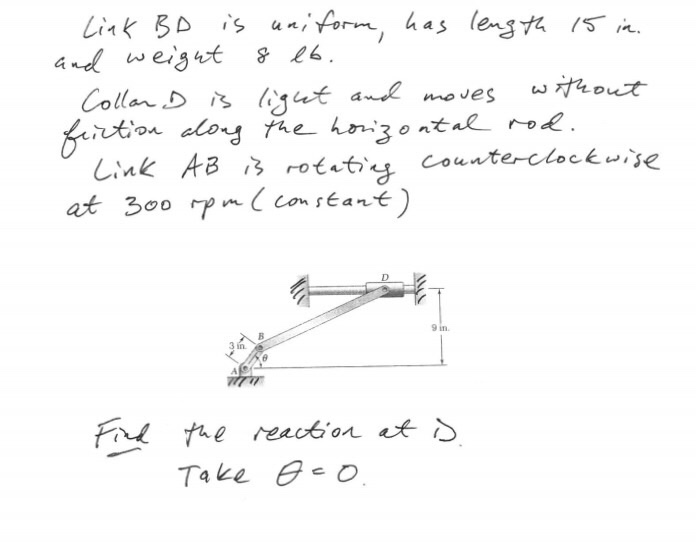 Link BD is uniform, has length 15 in.
and weight 8 lb.
Collar D is light and moves without
friction along the horizontal rod.
Link AB is rotating counterclockwise
at 300 rpm (constant)
D
9 in.
3 in.
B
θ
A
Find the reaction at D.
Take θ = 0.